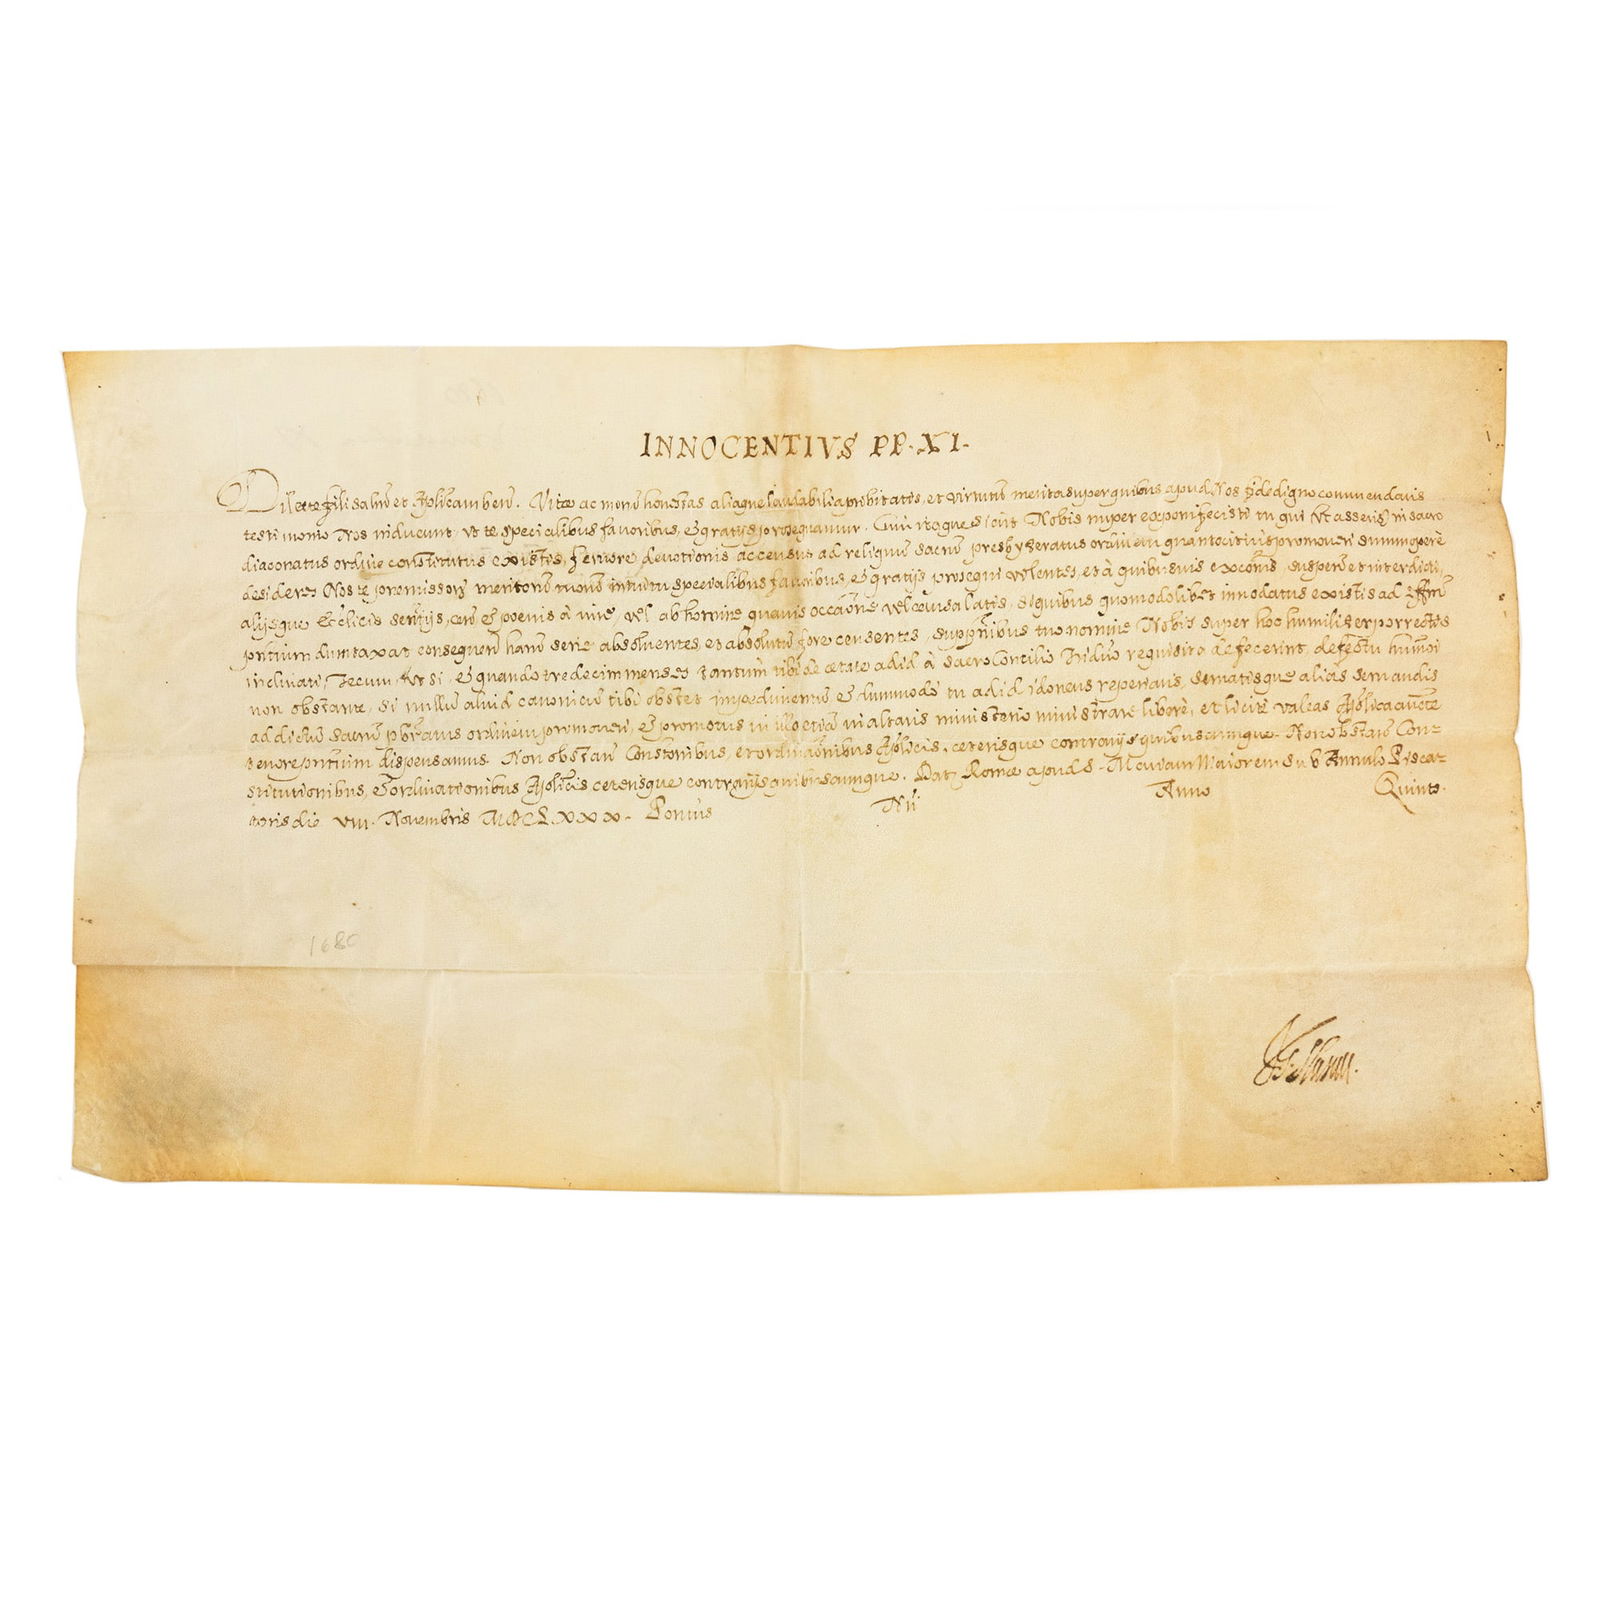 INNOCENTIVS PP. XI.
Dilecte fili salūē et Aplicam benē. Vitæ ac morū honestas aliaque laudabilia probitatis, et virtutū merita super quibus apud Nos fidedigno commendaris
testimonio Nos inducunt, ut te specialibus favoribus, et gratijs prosequamur. Cum itaque sicut Nobis nuper exponi fecisti tu qui (ut asseris) in sacro
diaconatus ordine constitutus existis, fervore devotionis accensus ad reliquū sacrū presbyteratus ordinem quantocitius promoveri summoperè
desideres Nos te premissorū meritorū tuorū intuitu specialibus favoribus, et gratijs prosequi volentes, et à quibusvis excōnis, suspens et interdicti,
alijsque Ecclicis sentijs, cen et poenis à iure, vel ab homine quavis occāōne vel causa latis, si quibus quomodolibet innodatus existis ad effm
pntium dumtaxat consequen harū serie absolventes, et absolutū fore censentes, supplnibus tuo nomine Nobis super hoc humiliter porrectis
inclinati, Tecum, ut si, et quando tredecim menses tantum tibi de ætate ad id à sacro Concilio Tridno requisita defecerint, defectu humōi
non obstante, si nullū aliud canonicū tibi obstet impedimentū et dummodo tu ad id idoneus reperiaris, servatisque alias servandis
ad dictū sacrū pbratus ordinem promoveri, et promotus in illo etiā in altaris ministerio ministrare liberè, et licitè valeas Aplica aucte
tenore pntium dispensamus. Non obstan Constōnibus, et ordināōnibus Aplicis, ceterisque contrarijs quibuscumque. Non obstan Con-
stitutionibus, et ordinationibus Aplicis ceterisque contrarijs quibuscumque. Dat Romæ apud S. Mariam Maiorem sub Annulo Piscat-
oris die VIII. Novembris MDCLXXX. Pontus Nri Anno Quinto.
1680